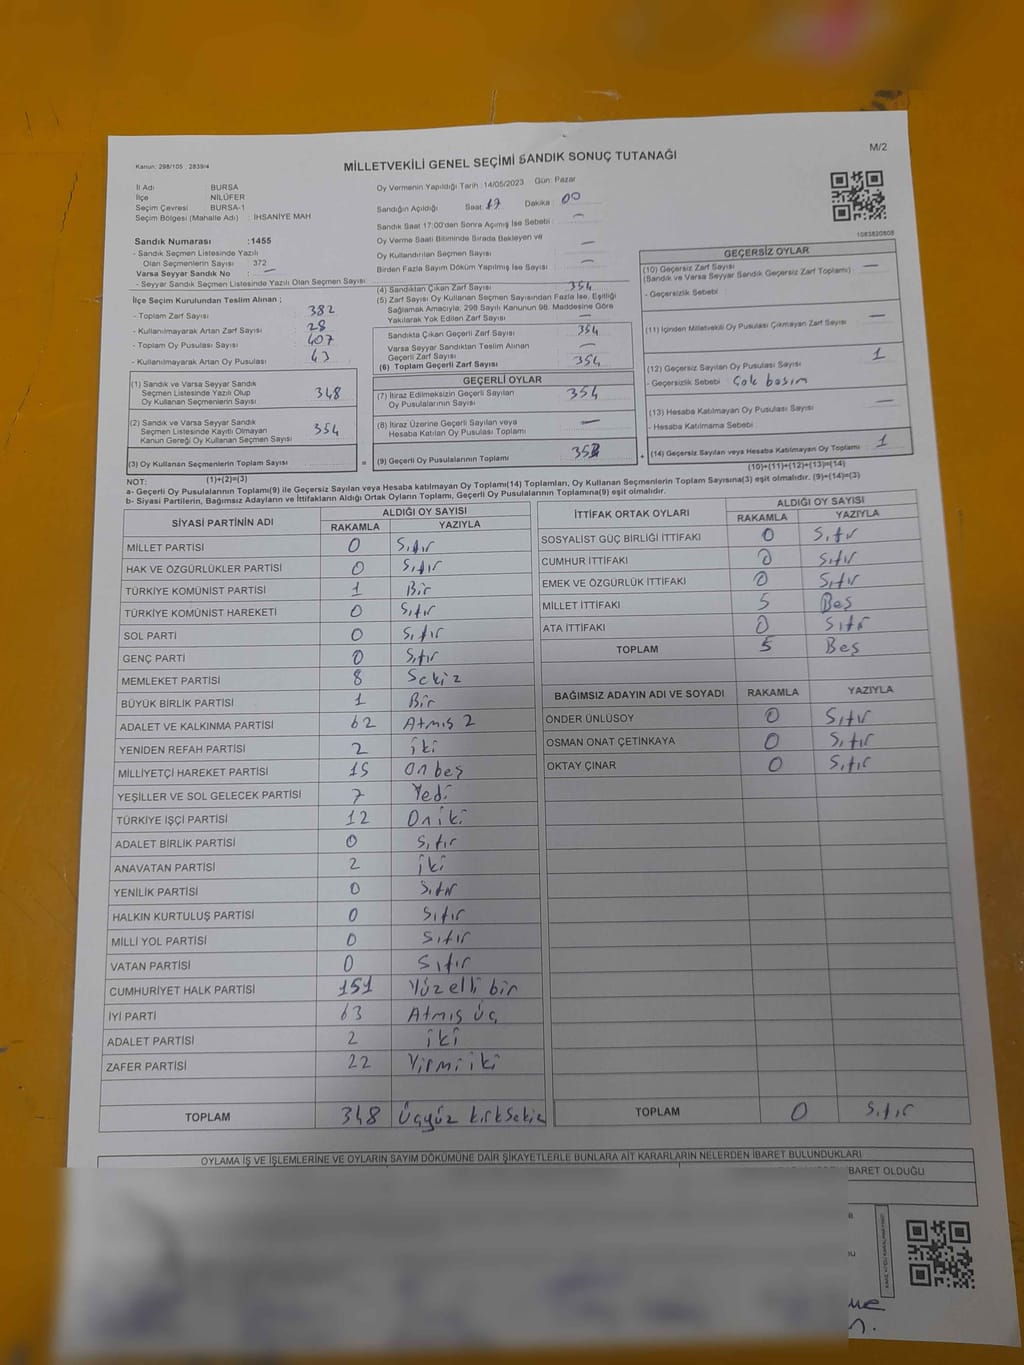 Kanun: 298/105 , 2839/4
MİLLETVEKİLİ GENEL SEÇİMİ SANDIK SONUÇ TUTANAĞI
M/2
İl Adı : BURSA
İlçe : NİLÜFER
Seçim Çevresi : BURSA-1
Seçim Bölgesi (Mahalle Adı) : İHSANİYE MAH
Oy Vermenin Yapıldığı Tarih : 14/05/2023 Gün: Pazar
Sandığın Açıldığı Saat : 17 Dakika : 00
Sandık Saat 17:00'den Sonra Açımış İse Sebebi : —
Oy Verme Saati Bitiminde Sırada Bekleyen ve
Oy Kullandırılan Seçmen Sayısı : —
Birden Fazla Sayım Döküm Yapılmış İse Sayısı : —
1083820808
Sandık Numarası : 1455
- Sandık Seçmen Listesinde Yazılı
Olan Seçmenlerin Sayısı : 372
Varsa Seyyar Sandık No : —
- Seyyar Sandık Seçmen Listesinde Yazılı Olan Seçmen Sayısı
İlçe Seçim Kurulundan Teslim Alınan ;
- Toplam Zarf Sayısı : 382
- Kullanılmayarak Artan Zarf Sayısı : 28
- Toplam Oy Pusulası Sayısı : 407
- Kullanılmayarak Artan Oy Pusulası : 43
(1) Sandık ve Varsa Seyyar Sandık
Seçmen Listesinde Yazılı Olup
Oy Kullanan Seçmenlerin Sayısı 348
(2) Sandık ve Varsa Seyyar Sandık
Seçmen Listesinde Kayıtlı Olmayan
Kanun Gereği Oy Kullanan Seçmen Sayısı 354
(3) Oy Kullanan Seçmenlerin Toplam Sayısı
(1)+(2)=(3)
(4) Sandıktan Çıkan Zarf Sayısı : 354
(5) Zarf Sayısı Oy Kullanan Seçmen Sayısından Fazla İse, Eşitliği
Sağlamak Amacıyla, 298 Sayılı Kanunun 98. Maddesine Göre
Yakılarak Yok Edilen Zarf Sayısı : —
Sandıkta Çıkan Geçerli Zarf Sayısı : 354
Varsa Seyyar Sandıktan Teslim Alınan
Geçerli Zarf Sayısı : —
(6) Toplam Geçerli Zarf Sayısı : 354
GEÇERLİ OYLAR
(7) İtiraz Edilmeksizin Geçerli Sayılan
Oy Pusulalarının Sayısı : 354
(8) İtiraz Üzerine Geçerli Sayılan veya
Hesaba Katılan Oy Pusulası Toplamı : —
= (9) Geçerli Oy Pusulalarının Toplamı
GEÇERSİZ OYLAR
(10) Geçersiz Zarf Sayısı
(Sandık ve Varsa Seyyar Sandık Geçersiz Zarf Toplamı) : —
- Geçersizlik Sebebi :
(11) İçinden Milletvekili Oy Pusulası Çıkmayan Zarf Sayısı : —
(12) Geçersiz Sayılan Oy Pusulası Sayısı : 1
- Geçersizlik Sebebi : Çok basım
(13) Hesaba Katılmayan Oy Pusulası Sayısı : —
- Hesaba Katılmama Sebebi :
+ (14) Geçersiz Sayılan veya Hesaba Katılmayan Oy Toplamı : 1
(10)+(11)+(12)+(13)=(14)
NOT:
a- Geçerli Oy Pusulalarının Toplamı(9) ile Geçersiz veya Hesaba katılmayan Oy Toplamı(14) Toplamları, Oy Kullanan Seçmenlerin Toplam Sayısına(3) eşit olmalıdır. (9)+(14)=(3)
b- Siyasi Partilerin, Bağımsız Adayların ve İttifakların Aldığı Ortak Oyların Toplamı, Geçerli Oy Pusulalarının Toplamına(9) eşit olmalıdır.
SİYASİ PARTİNİN ADI ALDIĞI OY SAYISI
RAKAMLA YAZIYLA
MİLLET PARTİSİ 0 Sıfır
HAK VE ÖZGÜRLÜKLER PARTİSİ 0 Sıfır
TÜRKİYE KOMÜNİST PARTİSİ 1 Bir
TÜRKİYE KOMÜNİST HAREKETİ 0 Sıfır
SOL PARTİ 0 Sıfır
GENÇ PARTİ 0 Sıfır
MEMLEKET PARTİSİ 8 Sekiz
BÜYÜK BİRLİK PARTİSİ 1 Bir
ADALET VE KALKINMA PARTİSİ 62 Atmış 2
YENİDEN REFAH PARTİSİ 2 iki
MİLLİYETÇİ HAREKET PARTİSİ 15 Onbeş
YEŞİLLER VE SOL GELECEK PARTİSİ 7 Yedi
TÜRKİYE İŞÇİ PARTİSİ 12 Oniki
ADALET BİRLİK PARTİSİ 0 Sıfır
ANAVATAN PARTİSİ 2 iki
YENİLİK PARTİSİ 0 Sıfır
HALKIN KURTULUŞ PARTİSİ 0 Sıfır
MİLLİ YOL PARTİSİ 0 Sıfır
VATAN PARTİSİ 0 Sıfır
CUMHURİYET HALK PARTİSİ 151 Yüzelli bir
İYİ PARTİ 63 Atmış üç
ADALET PARTİSİ 2 iki
ZAFER PARTİSİ 22 Yirmi iki
TOPLAM 348 Üçyüz kırksekiz
İTTİFAK ORTAK OYLARI ALDIĞI OY SAYISI
RAKAMLA YAZIYLA
SOSYALİST GÜÇ BİRLİĞİ İTTİFAKI 0 Sıfır
CUMHUR İTTİFAKI 0 Sıfır
EMEK VE ÖZGÜRLÜK İTTİFAKI 0 Sıfır
MİLLET İTTİFAKI 5 Beş
ATA İTTİFAKI 0 Sıfır
TOPLAM 5 Beş
BAĞIMSIZ ADAYIN ADI VE SOYADI RAKAMLA YAZIYLA
ÖNDER ÜNLÜSOY 0 Sıfır
OSMAN ONAT ÇETİNKAYA 0 Sıfır
OKTAY ÇINAR 0 Sıfır
TOPLAM 0 Sıfır
OYLAMA İŞ VE İŞLEMLERİNE VE OYLARIN SAYIM DÖKÜMÜNE DAİR ŞİKAYETLERLE BUNLARA AİT KARARLARIN NELERDEN İBARET BULUNDUKLARI
İBARET OLDUĞU